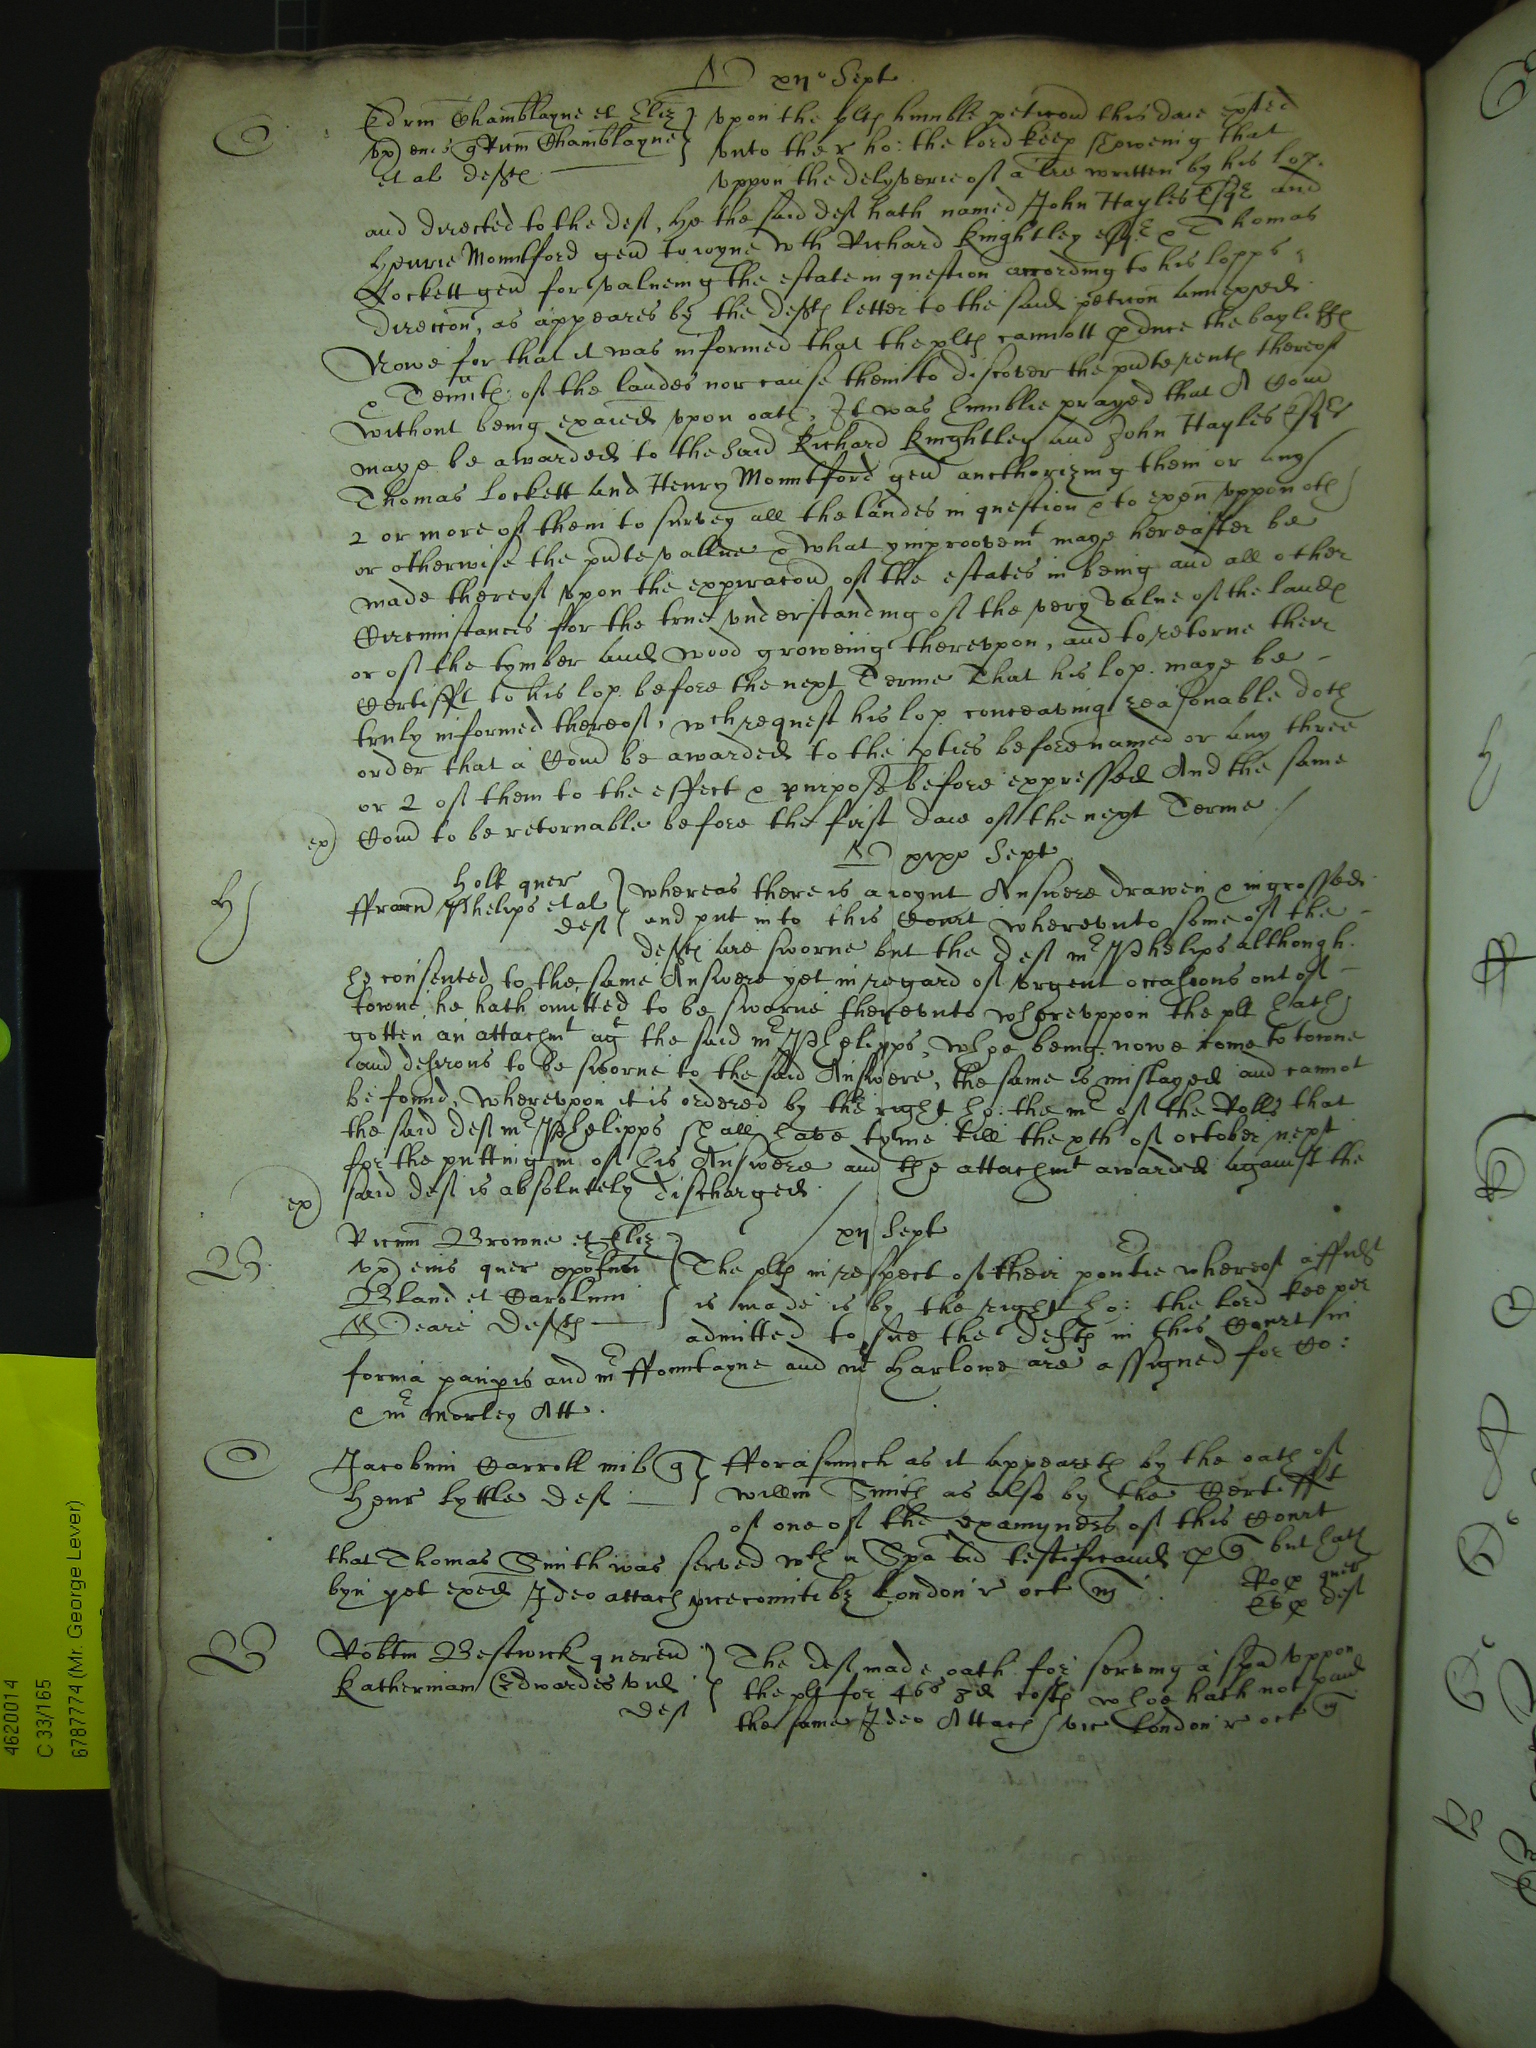 xij° Sept
C Edrm Chamblayne et Eliz
ux eius q Rum Chamblayne
et al defts
upon the plts humble peticon this daie
unto the r ho: the lord keep shewing that
uppon the delyverie of a lre written by his lop.
and directed to the def, he the said def hath named John Hayles esqr and
Henrie Mountford gen to ioyne wth Richard Knightley esqr & Thomas
Lockett gen for valueing the estate in question according to his lopps
direccon, as appeares by the defts letter to the said peticon annexed
Nowe for that it was informed that the plts cannott pduce the bayliffes
& Tennts of the landes nor cause them to discover the pnte rents thereof
without being exaied upon oath, It was humblie prayed that A Com
maye be awarded to the said Richard Knightley and John Hayles Esqrs
Thomas Lockett and Henry Mountford gen aucthorizing them or any
2 or more of them to survey all the landes in question & to exam uppon oth
or otherwise the pnte vallue & what ymproovemt maye hereafter be
made thereof upon the expiracon of the estates in being and all other
Circumstances for the true understanding of the very value of the landes
or of the tymber and wood groweing thereupon, and to retorne their
Certifft to his lop before the next Terme That his lop. maye be
truly informed thereof, wch request his lop conceaving reasonable doth
order that a Com be awarded to the pties before named or any three
or 2 of them to the effect & purpose before expressed And the same
ex Com to be retornable before the first daie of the next Terme
xxix Sept
H Holt quer
Phelips et al
def
whereas there is a ioynt Answere drawen & ingrossed
and put in to this Court whereunto some of the
defts are sworne but the def mr Phelips although
he consented to the same Answere yet in regard of urgent occasions out of
towne he hath omitted to be sworne thereunto whereuppon the plt hath
gotten an attachmt agt the said mr Phelipps, whoe being nowe come to towne
and desirous to be sworne to the said Answere, the same is mislayed and cannot
be found, whereupon it is ordered by the right ho: the mr of the Rolls that
the said def mr Phelipps shall have tyme till the xth of october next
for the putting in of his Answere and the attachmt awarded against the
ex said def is absolutely discharged
xij Sept
B Ricum Browne et Eliz
ux eius quer
Bland et Carolum
Deare defts
The plts in respect of their povtie whereof affidt
is made is by the right ho: the lord keeper
admitted to sue the defts in this Court in
forma paupis and mr Fountayne and mr Harlowe are assigned for Co:
& mr Morley Att.
C Jacobum Carroll mil q
Henr Lyttle def
fforasmuch as it appeareth by the oath of
Willm Smith as also by the Certifft
of one of the examyners of this Court
that Thomas Smith was served wth a Spa ad testificand p q but hath
byn yet exed Ideo attach vicecomitibz London r oct m
Ro p quer
p def
B Robtm Bestwick queren
Katherinam Edwardes vid
def
The def made oath for serving a spa uppon
the plt for 46s 8d costs whoe hath not paid
the same Ideo Attach vic London r oct m
4620014
C 33/165
6787774 (Mr. George Lever)